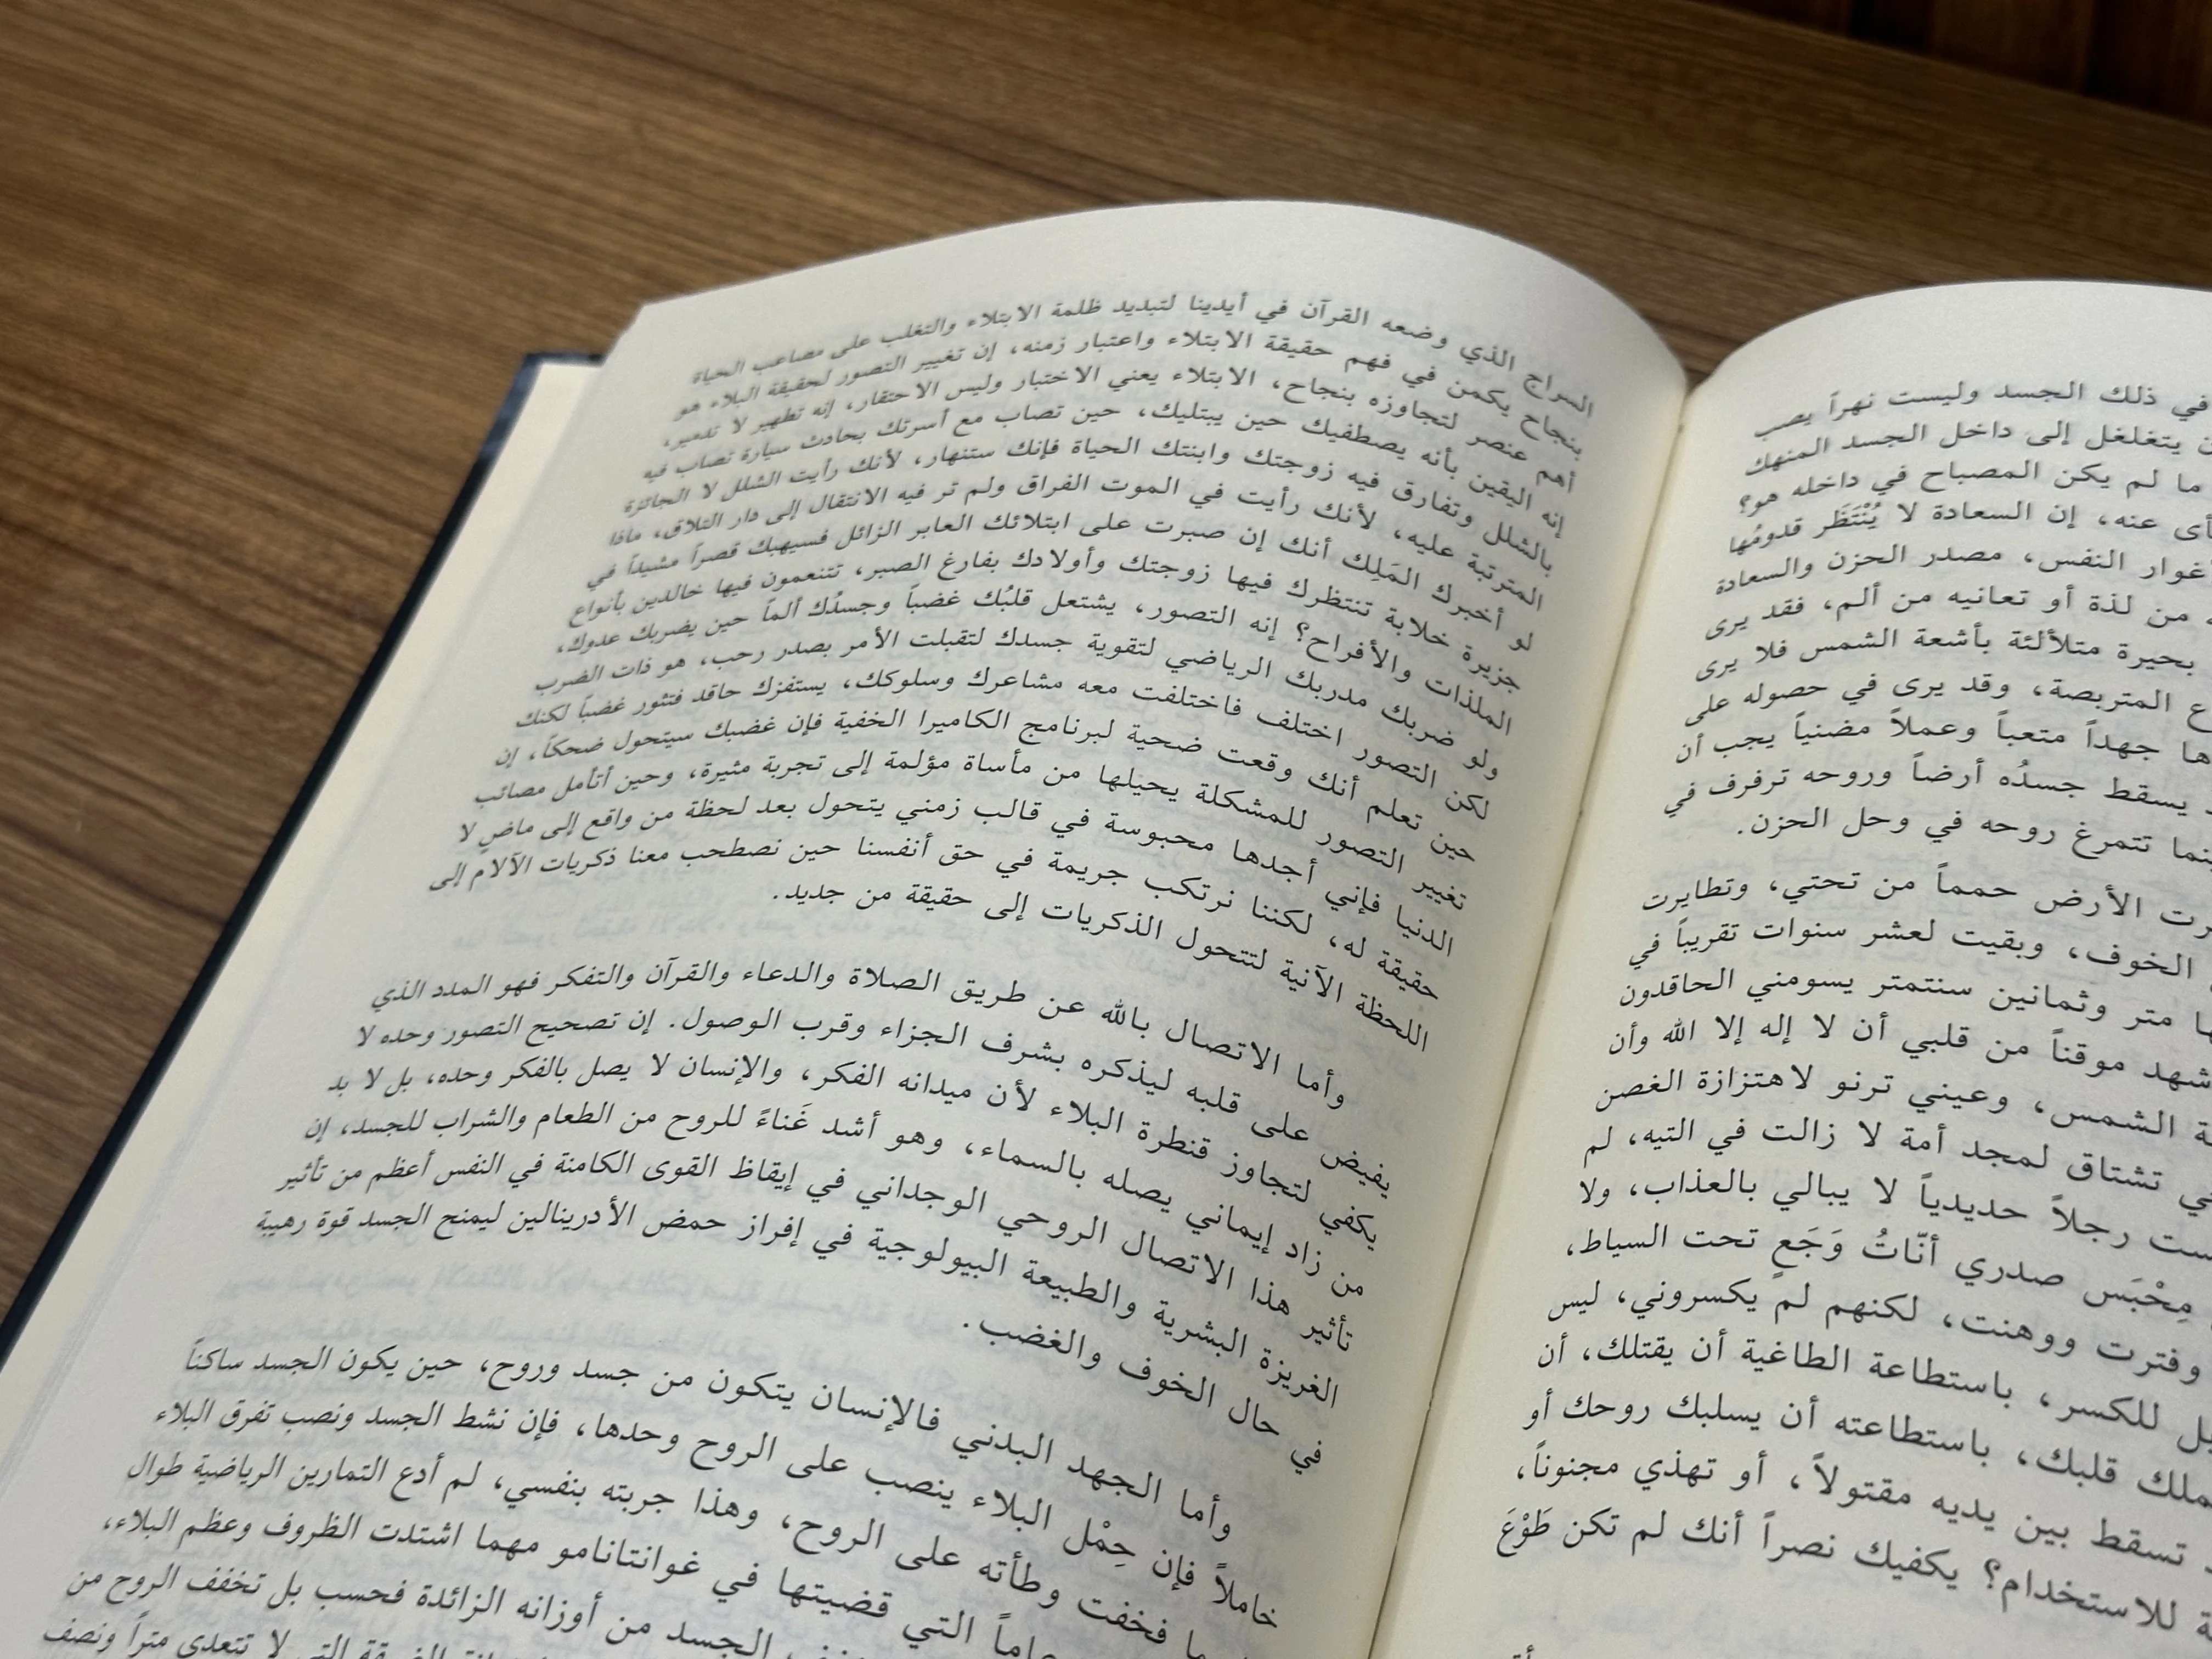 في ذلك الجسد وليست نهراً يصب
يتغلغل إلى داخل الجسد المنهك
ما لم يكن المصباح في داخله هو؟
عنه، إن السعادة لا يُنْتَظَر قدومُها
أغوار النفس، مصدر الحزن والسعادة
من لذة أو تعانيه من ألم، فقد يرى
بحيرة متلألئة بأشعة الشمس فلا يرى
المتربصة، وقد يرى في حصوله على
جهداً متعباً وعملاً مضنياً يجب أن
يسقط جسدُه أرضاً وروحه ترفرف في
تتمرغ روحه في وحل الحزن.
الأرض حمماً من تحتي، وتطايرت
الخوف، وبقيت لعشر سنوات تقريباً في
متر وثمانين سنتمتر يسومني الحاقدون
موقناً من قلبي أن لا إله إلا الله وأن
الشمس، وعيني ترنو لاهتزازة الغصن
تشتاق لمجد أمة لا زالت في التيه، لم
رجلاً حديدياً لا يبالي بالعذاب، ولا
مِحْبَس صدري أنّاتُ وَجَعٍ تحت السياط،
وفترت ووهنت، لكنهم لم يكسروني، ليس
للكسر، باستطاعة الطاغية أن يقتلك، أن
قلبك، باستطاعته أن يسلبك روحك أو
تسقط بين يديه مقتولاً، أو تهذي مجنوناً،
للاستخدام؟ يكفيك نصراً أنك لم تكن طَوْعَ
السراج الذي وضعه القرآن في أيدينا لتبديد ظلمة الابتلاء والتغلب على مصاعب الحياة
بنجاح يكمن في فهم حقيقة الابتلاء واعتبار زمنه، إن تغيير التصور لحقيقة البلاء هو
أهم عنصر لتجاوزه بنجاح، الابتلاء يعني الاختبار وليس الاحتقار، إنه تطهير لا تدمير،
إنه اليقين بأنه يصطفيك حين يبتليك، حين تصاب مع أسرتك بحادث سيارة تصاب فيه
بالشلل وتفارق فيه زوجتك وابنتك الحياة فإنك ستنهار، لأنك رأيت الشلل لا الجائزة
المترتبة عليه، لأنك رأيت في الموت الفراق ولم تر فيه الانتقال إلى دار التلاق، ماذا
لو أخبرك المَلِك أنك إن صبرت على ابتلائك العابر الزائل فسيهبك قصراً مشيداً في
جزيرة خلابة تنتظرك فيها زوجتك وأولادك بفارغ الصبر، تتنعمون فيها خالدين بأنواع
الملذات والأفراح؟ إنه التصور، يشتعل قلبُك غضباً وجسدُك ألماً حين يضربك عدوك،
ولو ضربك مدربك الرياضي لتقوية جسدك لتقبلت الأمر بصدر رحب، هو ذات الضرب
لكن التصور اختلف فاختلفت معه مشاعرك وسلوكك، يستفزك حاقد فتثور غضباً لكنك
حين تعلم أنك وقعت ضحية لبرنامج الكاميرا الخفية فإن غضبك سيتحول ضحكاً، إن
تغيير التصور للمشكلة يحيلها من مأساة مؤلمة إلى تجربة مثيرة، وحين أتأمل مصائب
الدنيا فإني أجدها محبوسة في قالب زمني يتحول بعد لحظة من واقع إلى ماضٍ لا
حقيقة له، لكننا نرتكب جريمة في حق أنفسنا حين نصطحب معنا ذكريات الآلام إلى
اللحظة الآنية لتتحول الذكريات إلى حقيقة من جديد.
وأما الاتصال بالله عن طريق الصلاة والدعاء والقرآن والتفكر فهو المدد الذي
يفيض على قلبه ليذكره بشرف الجزاء وقرب الوصول. إن تصحيح التصور وحده لا
يكفي لتجاوز قنطرة البلاء لأن ميدانه الفكر، والإنسان لا يصل بالفكر وحده، بل لا بد
من زاد إيماني يصله بالسماء، وهو أشد غَناءً للروح من الطعام والشراب للجسد، إن
تأثير هذا الاتصال الروحي الوجداني في إيقاظ القوى الكامنة في النفس أعظم من تأثير
الغريزة البشرية والطبيعة البيولوجية في إفراز حمض الأدرينالين ليمنح الجسد قوة رهيبة
في حال الخوف والغضب.
وأما الجهد البدني فالإنسان يتكون من جسد وروح، حين يكون الجسد ساكناً
خاملاً فإن حِمْل البلاء ينصب على الروح وحدها، فإن نشط الجسد ونصب تفرق البلاء
فخفت وطأته على الروح، وهذا جربته بنفسي، لم أدع التمارين الرياضية طوال
عاماً التي قضيتها في غوانتانامو مهما اشتدت الظروف وعظم البلاء،
الجسد من أوزانه الزائدة فحسب بل تخفف الروح من
التي لا تتعدى متراً ونصف